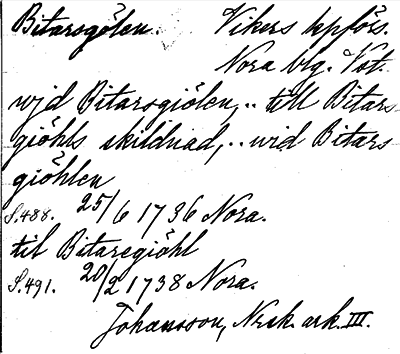 Bitarsgölen. Vikers kpförs.
Nora blg. Vstm.
wjd Bitarsgiölen,.. till Bitars
giöhls skildnad,.. wid Bitars
giöhlen
S.488. 25/6 1736 Nora.
til Bitaregiöhl
S.491. 20/2 1738 Nora.
Johansson, Nrsk. ark. III.